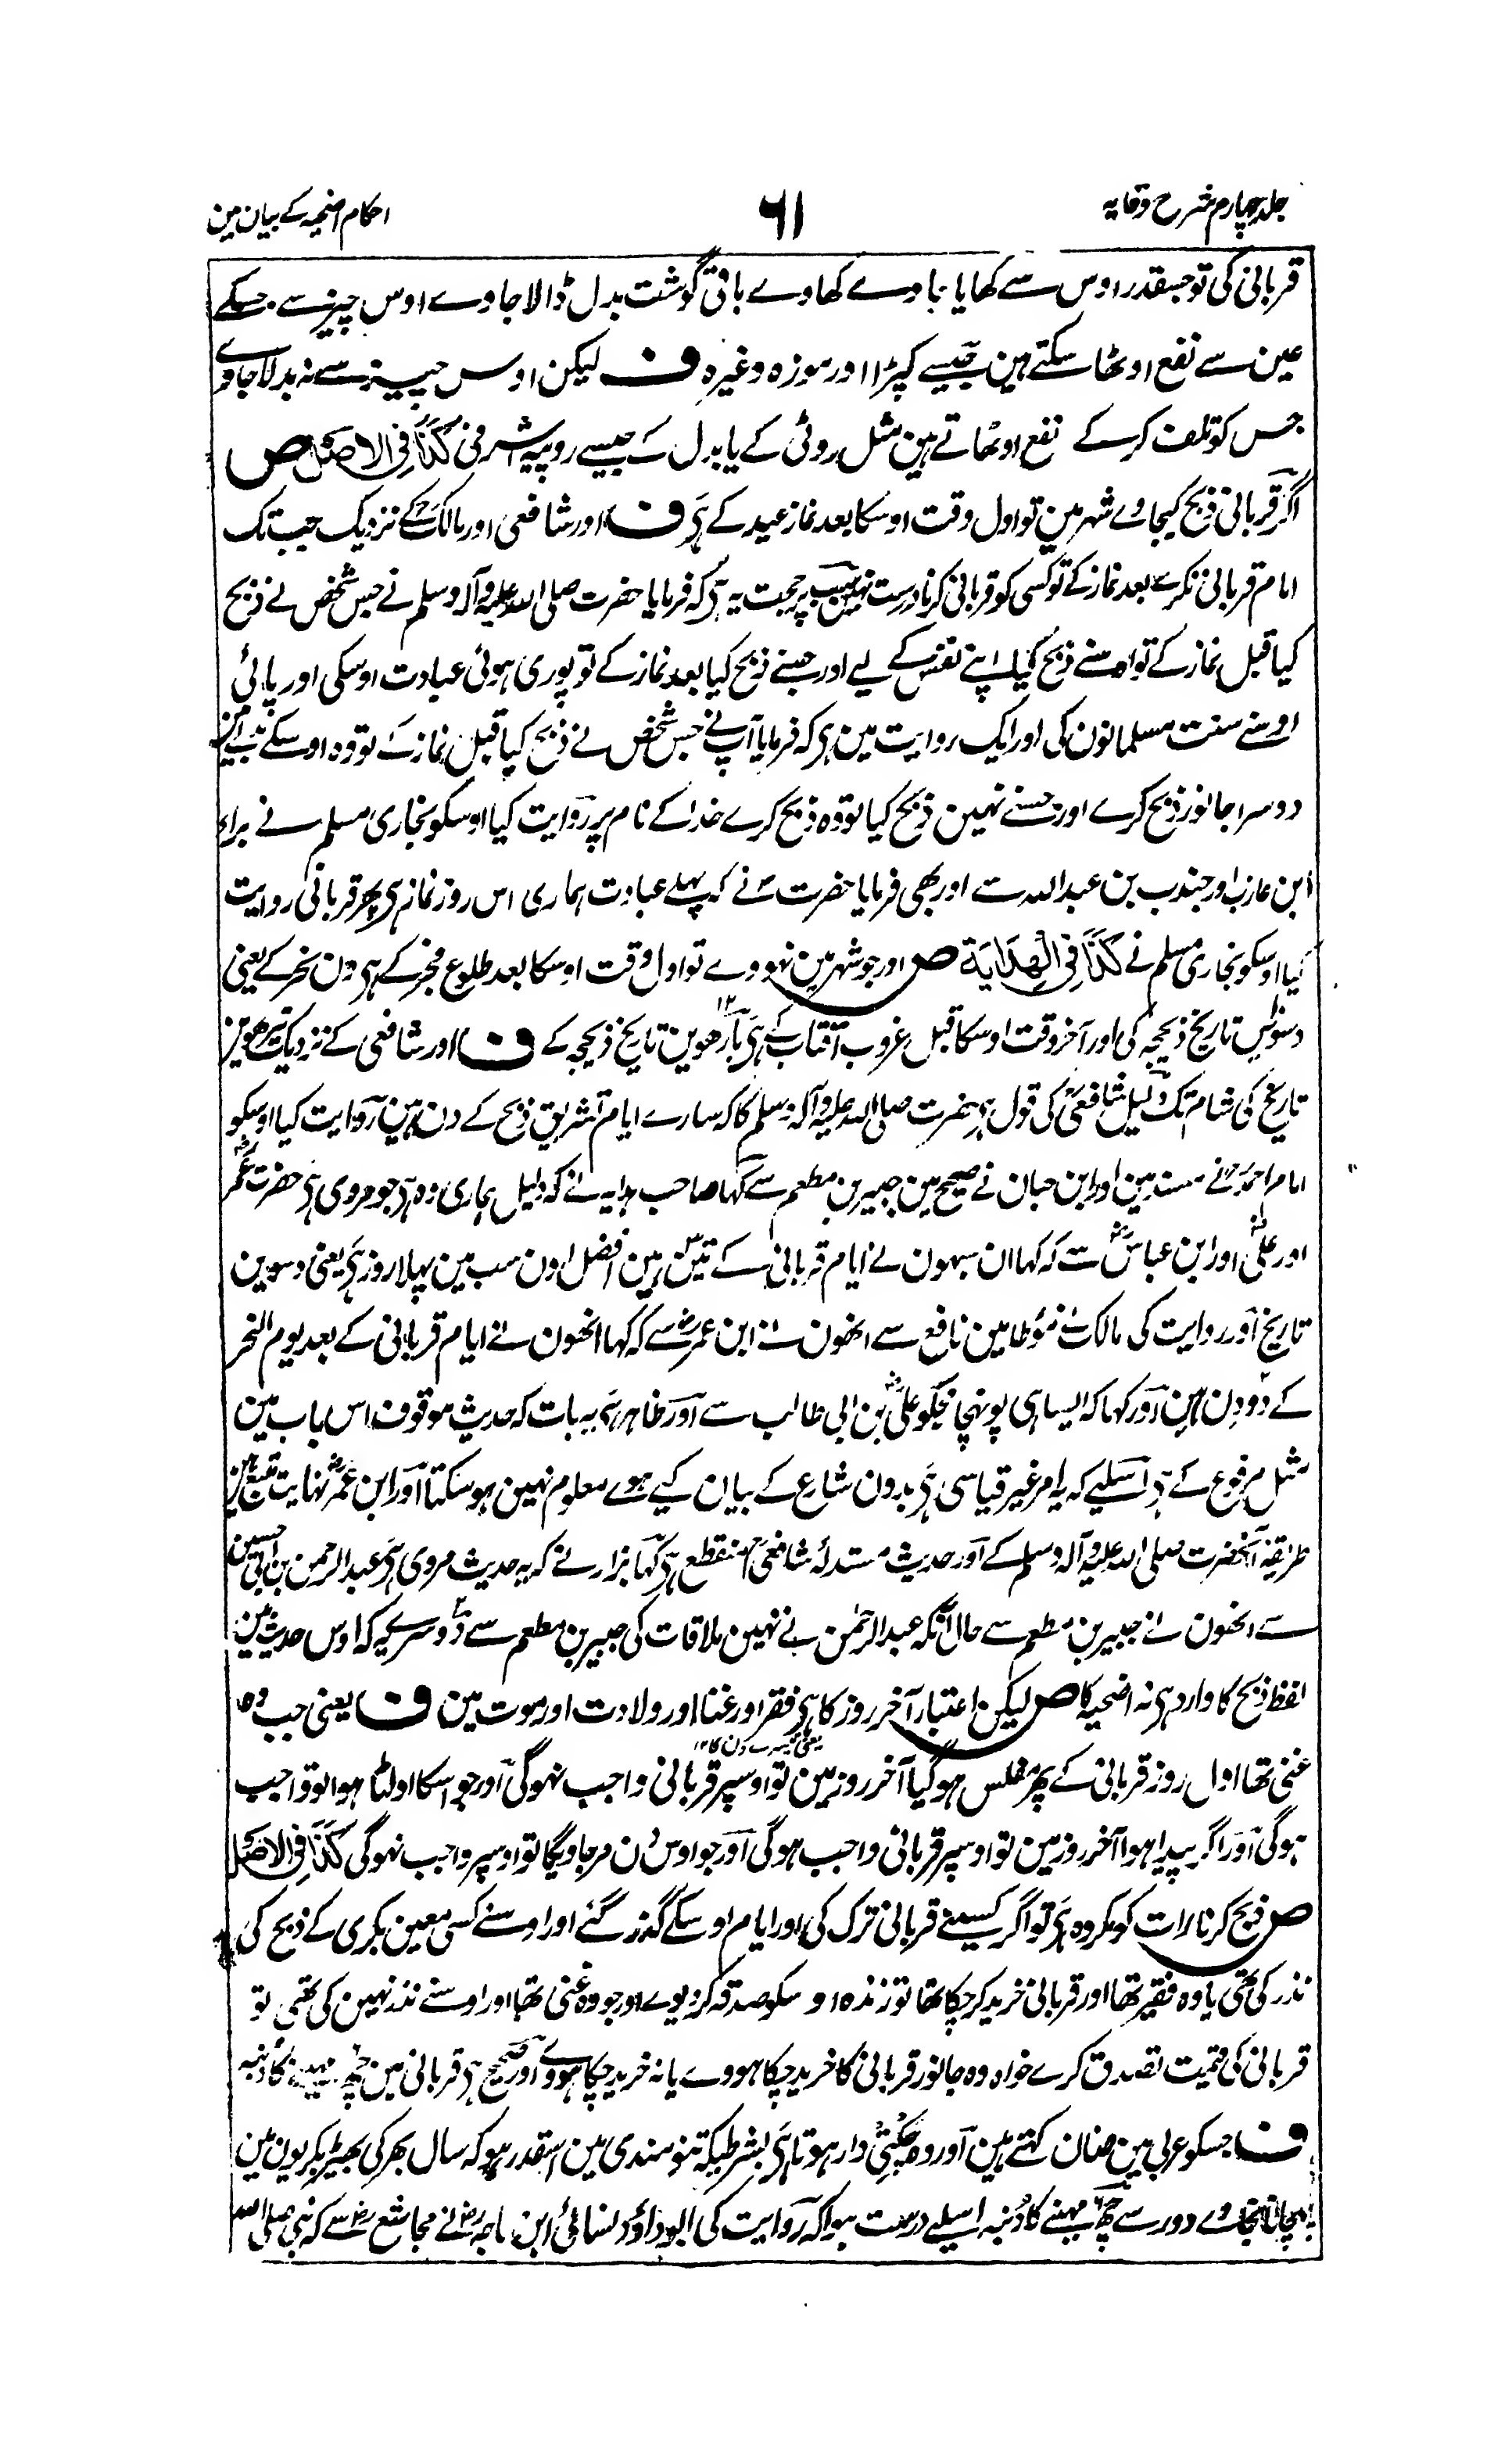 جلد چہارم شرح وقایہ
۶۱
احکام اضحیہ کے بیان مین
قربانی کی تو جسقدر اوس سے کھایا جاوے کھاوے باقی گوشت بدل ڈالا جاوے اوس چیز سے جسکے
عین سے نفع اوٹھا سکتے ہین جیسے کپڑا اور موزہ وغیرہ ف لیکن اوس چیز سے نہ بدلا جاوے
جس کو تلف کر کے نفع اوٹھاتے ہین مثل روٹی کے یا بدل کے جیسے روپیہ اشرفی کذا فی الاصل ص
اگر قربانی ذبح کیجاوے شہر مین تو اول وقت اوسکا بعد نماز عید کے ہی ف اور شافعی اور مالک کے نزدیک جب تک
امام قربانی نکرے بعد نماز کے تو کسی کو قربانی کرنا درست نہین سب پر حجت یہ ہی کہ فرمایا حضرت صلی اللہ علیہ وآلہ وسلم نے جس شخص نے ذبح
کیا قبل نماز کے تو اوسنے ذبح کیا اپنے نفس کے لیے اور جسنے ذبح کیا بعد نماز کے تو پوری ہوئی عبادت اوسکی اور پائی
اوسنے سنت مسلمانون کی اور ایک روایت مین ہی کہ فرمایا آپ نے جس شخص نے ذبح کیا قبل نماز کے تو وہ اوسکے بدلے مین
دوسرا جانور ذبح کرے اور جسنے نہین ذبح کیا تو وہ ذبح کرے خدا کے نام پر روایت کیا اوسکو بخاری مسلم نے براء
ابن عازب اور جندب بن عبد اللہ سے اور بھی فرمایا حضرت نے کہ پہلے عبادت ہماری اس روز نماز ہی پھر قربانی روایت
کیا اوسکو بخاری مسلم نے کذا فی الہدایۃ ص اور جو شہر مین نہووے تو اول وقت اوسکا بعد طلوع فجر کے ہی دن نحر کے یعنی
دسوین تاریخ ذیحجہ کی اور آخر وقت اوسکا قبل غروب آفتاب کے ہی بارھوین تاریخ ذیحجہ کے ف اور شافعی کے نزدیک تیرھوین
تاریخ کی شام تک دلیل شافعی کی قول ہی حضرت صلی اللہ علیہ وآلہ وسلم کا کہ سارے ایام تشریق ذبح کے دن ہین روایت کیا اوسکو
امام احمد نے مسند مین اور ابن حبان نے صحیح مین جبیر بن مطعم سے کہا صاحب ہدایہ نے کہ دلیل ہماری وہ ہی جو مروی ہی حضرت عمر
اور علی اور ابن عباس سے کہ کہا ان سبھون نے ایام قربانی کے تین ہین افضل اون سب مین پہلا روز ہی یعنی دسوین
تاریخ اور روایت کی مالک نے مؤطا مین نافع سے انھون نے ابن عمر سے کہ کہا انھون نے ایام قربانی کے بعد یوم النحر
کے دو دن ہین اور کہا کہ ایسا ہی پونہچا مجکو علی بن ابی طالب سے اور ظاہر ہی یہ بات کہ حدیث موقوف اس باب مین
مثل مرفوع کے ہی اسلیے کہ یہ امر غیر قیاسی ہی بدون شارع کے بیان کیے ہوے معلوم نہین ہو سکتا اور ابن عمر نہایت متبع ہین
طریقہ آنحضرت صلی اللہ علیہ وآلہ وسلم کے اور حدیث مستدلۂ شافعی منقطع ہی کہا بزار نے کہ یہ حدیث مروی ہی عبد الرحمن بن ابی حسین
سے انھون نے جبیر بن مطعم سے حال آنکہ عبد الرحمن نے نہین ملاقات کی جبیر بن مطعم سے دوسرے یہ کہ اوس حدیث مین
لفظ ذبح کا وارد ہی نہ اضحیہ کا ص لیکن اعتبار آخر روز کا ہی فقر اور غنا اور ولادت اور موت مین ف یعنی جب وہ
یعنی تیسرے دن کا ۱۲
غنی تھا اول روز قربانی کے پھر مفلس ہو گیا آخر روز مین تو اوسپر قربانی واجب نہوگی اور جو اسکا اولٹا ہوا تو واجب
ہوگی اور اگر پیدا ہوا آخر روز مین تو اوسپر قربانی واجب ہوگی اور جو اوس دن مر جاویگا تو اوسپر واجب نہوگی کذا فی الاصل
ص ذبح کرنا رات کو مکروہ ہی تو اگر کسینے قربانی ترک کی اور ایام اوسکے گذر گئے اور اوسنے کسی معین بکری کے ذبح کی
نذر کی تھی یا وہ فقیر تھا اور قربانی خرید کر چکا تھا تو زندہ اوسکو صدقہ کر دیوے اور جو وہ غنی تھا اور اوسنے نذر نہین کی تھی تو
قربانی کی قیمت تصدق کرے خواہ وہ جانور قربانی کا خرید چکا ہووے یا نہ خرید چکا ہووے اور صحیح ہی قربانی مین چھ مہینے کا دنبہ
ف جسکو عربی مین ضان کہتے ہین اور وہ چکتی دار ہوتا ہی بشرطیکہ تنومندی مین اسقدر ہو کہ سال بھر کی بھیڑ بکریون مین
پہچانا نجاوے دور سے چھ مہینے کا دنبہ اسلیے درست ہوا کہ روایت کی ابو داؤد نسائی ابن ماجہ نے مجاشع سے کہ نبی صلی اللہ